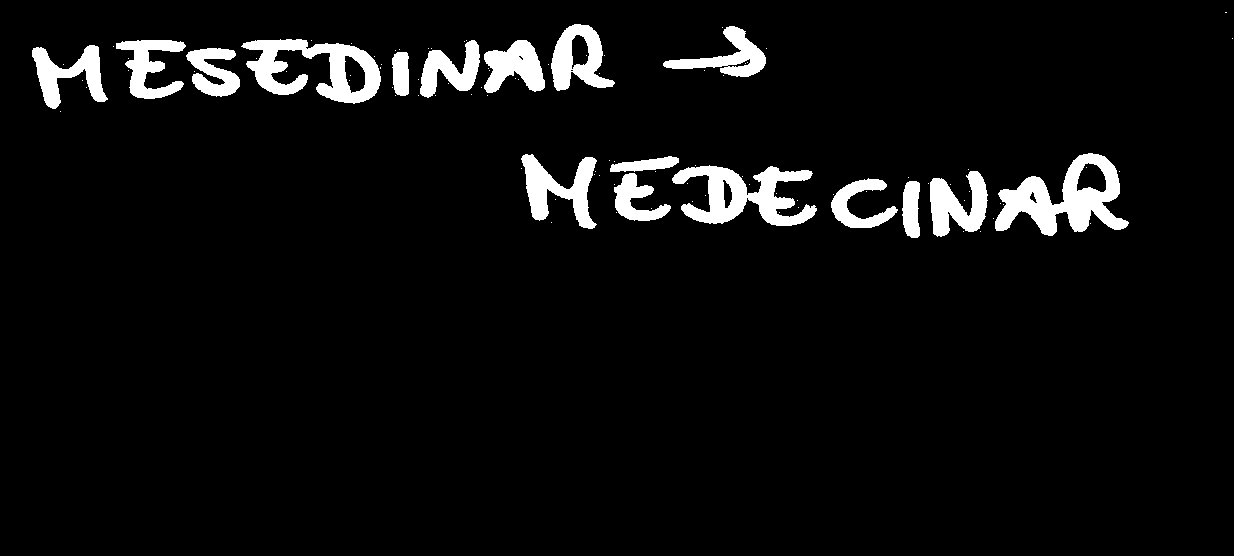 MESEDINAR →
MEDECINAR